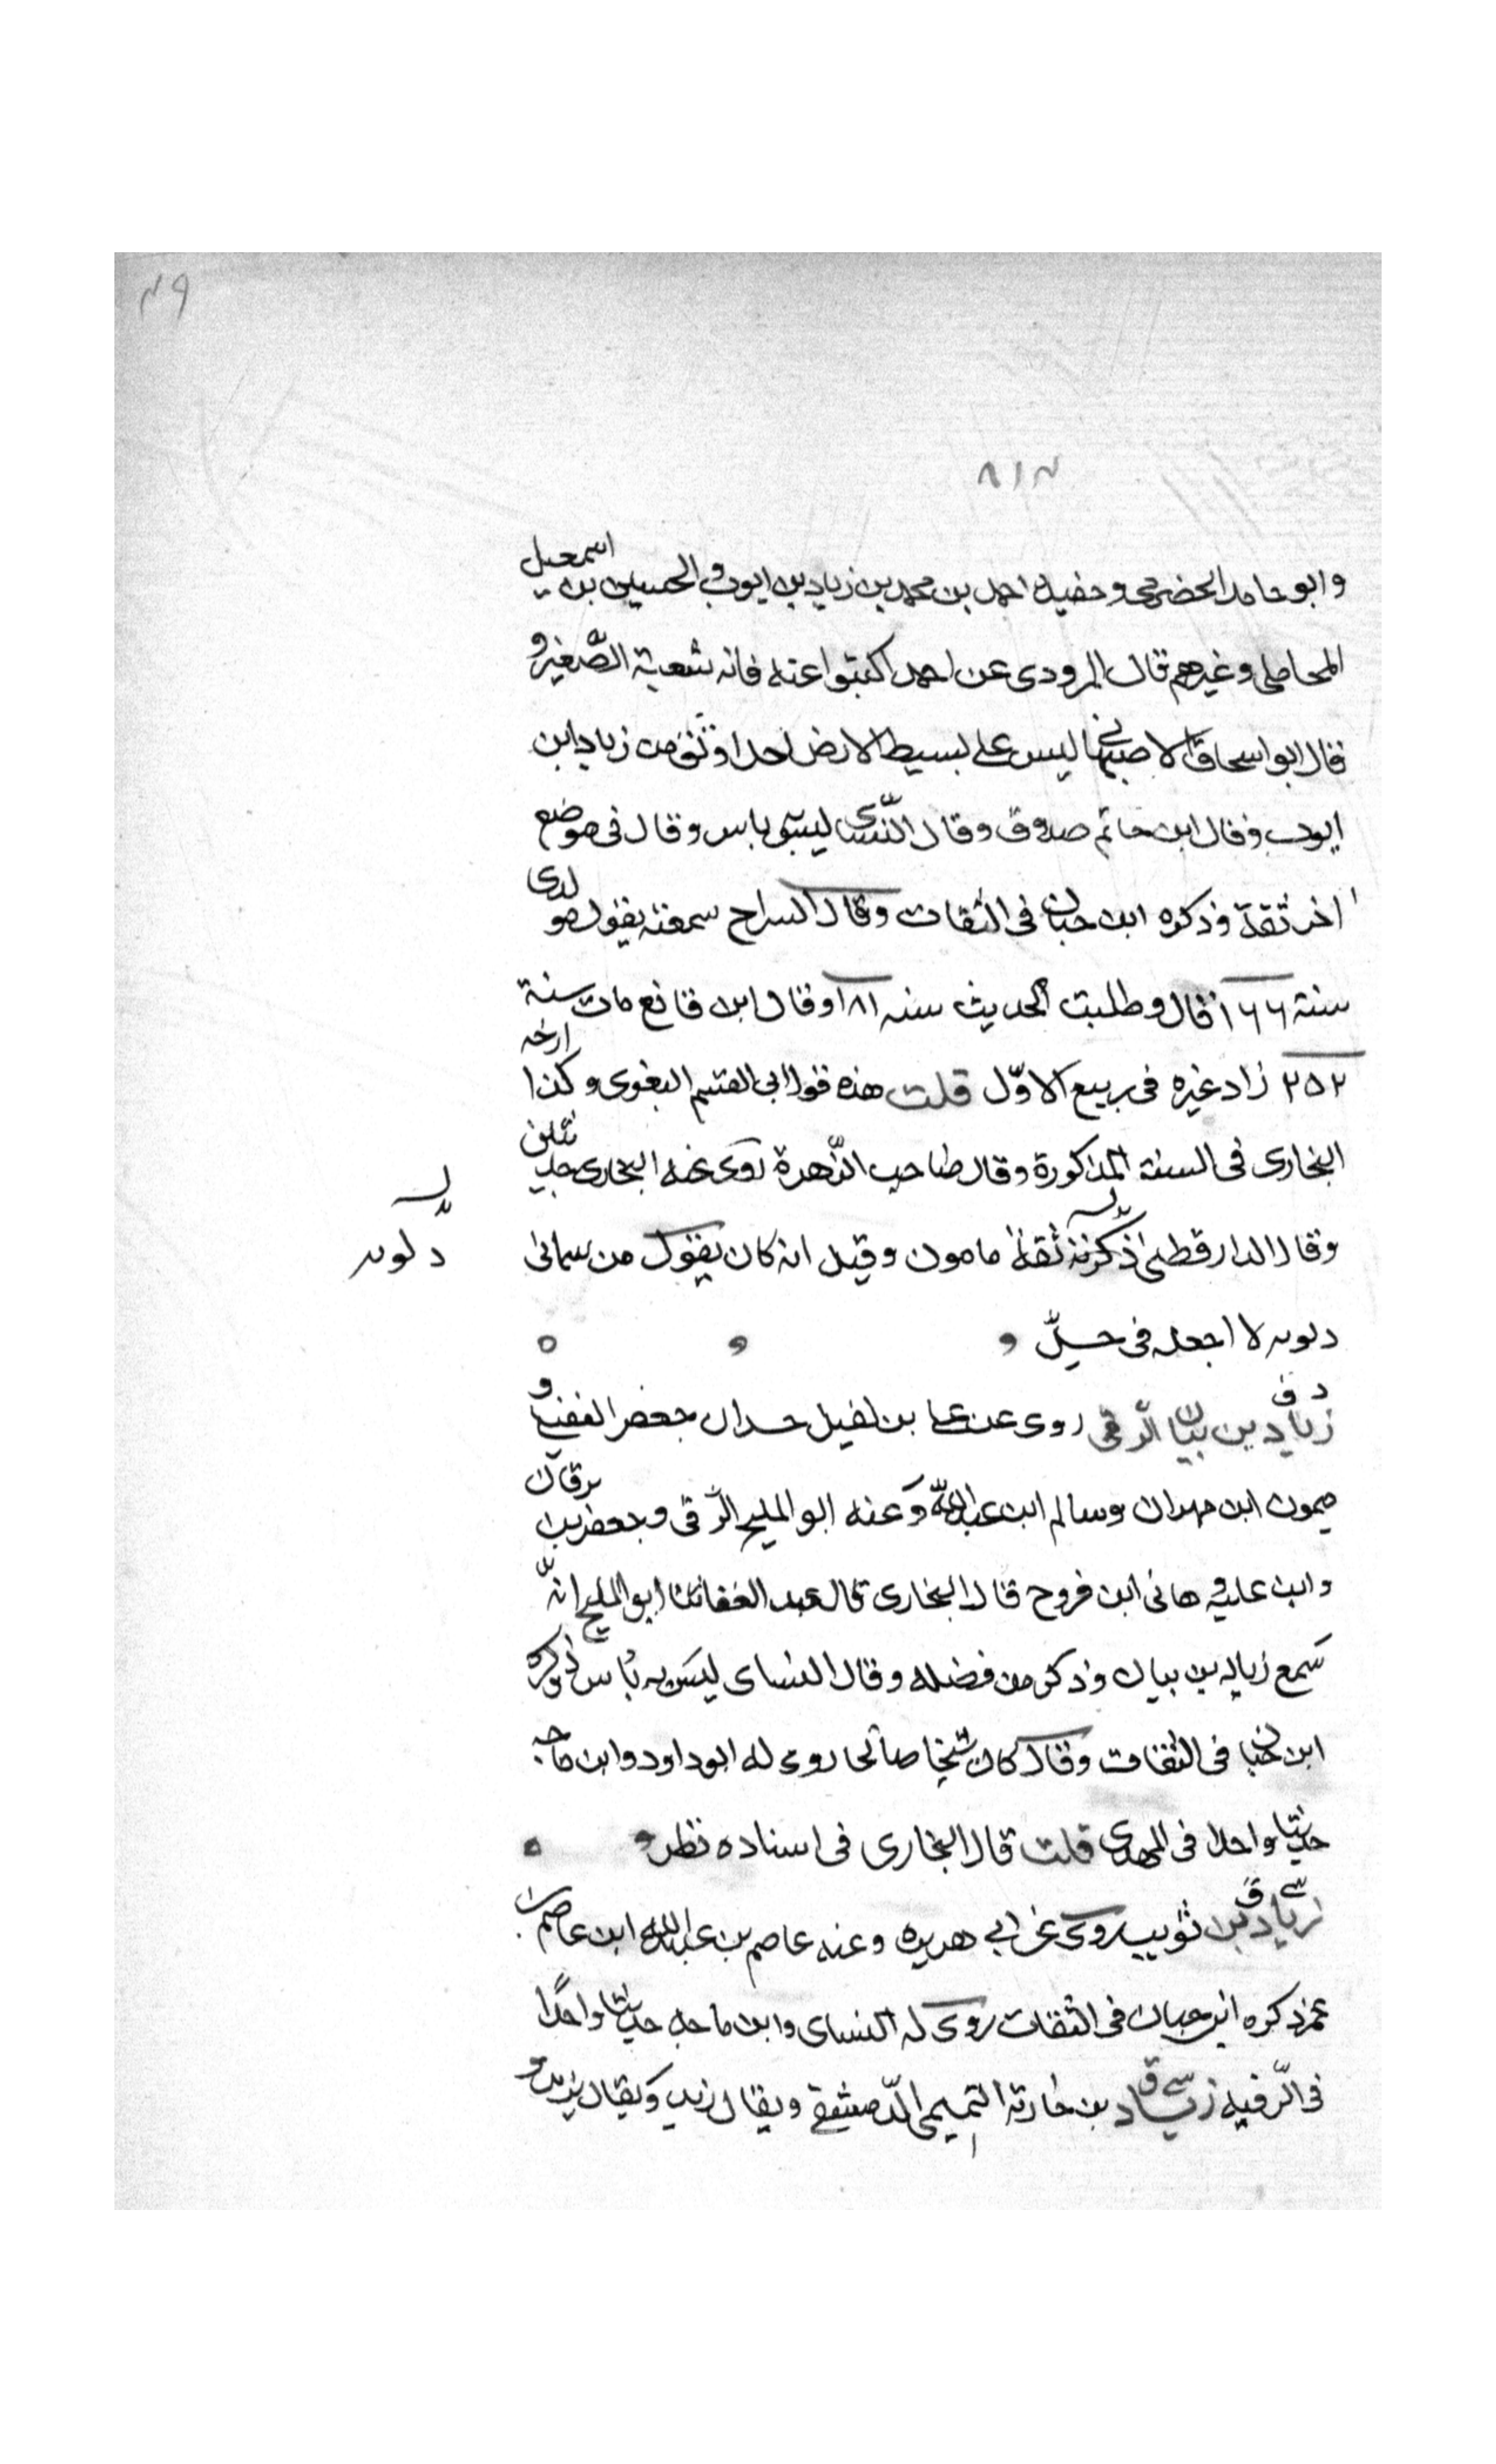 ٤٩
٨١٣
وابو حامد الحضرمى وحفيده احمد بن محمد بن زياد بن ايوب والحسين بن اسمعيل
المحاملى وغيرهم قال المرودى عن احمد اكتبوا عنه فانه شعبة الصّغير و
قال ابو اسحاق الاصبهانى ليس على بسيط الارض احدا وثق من زياد ابن
ايوب وقال ابن حاتم صدوق وقال النّسى ليس به باس وقال فى موضع
اخر ثقة وذكره ابن حبان فى الثقات وقال السراج سمعته يقول هو لدى
سنة ١٦٦ قال وطلبت الحديث سنه ١٨١ وقال ابن قانع مات سنة
٢٥٢ زاد غيره فى ربيع الاوّل قلت هذه قول ابى القسم البغوى وكذا ارخه
البخارى فى السنة المذكورة وقال صاحب الزّهرة روى عنه البخارى حديثين
وقال الدارقطنى ثقة مامون وقيل انه كان يقول من سمانى
دلويه
دلويه لا اجعله فى حلّ
د ق
زياد بن بيان الرّقى روى عن على بن نفيل جد ابى جعفر النفيلى و
ميمون ابن مهران وسالم ابن عبد الله وعنه ابو المليح الرّقى وجعفر بن برقان
وابن علية وهانى ابن فروح قال البخارى قال عبد الغفار ثنا ابو المليح انّه
سمع زياد بن بيان وذكر من فضله وقال النساى ليس به باس وذكره
ابن حبان فى الثقات وقال كان شيخا صالحا روى له ابو داود وابن ماجه
حديثا واحدا فى المهدى قلت قال البخارى فى اسناده نظر
س ق
زياد بن ثويب روى عن ابى هريره وعنه عاصم بن عبيد الله ابن عاصم بن
عمر ذكره ابن حبان فى الثقات روى له النساى وابن ماجه حديثا واحدًا
فى الرّقيه زياد بن حارثة التميمى الدّمشقى ويقال زيد ويقال يزيد و